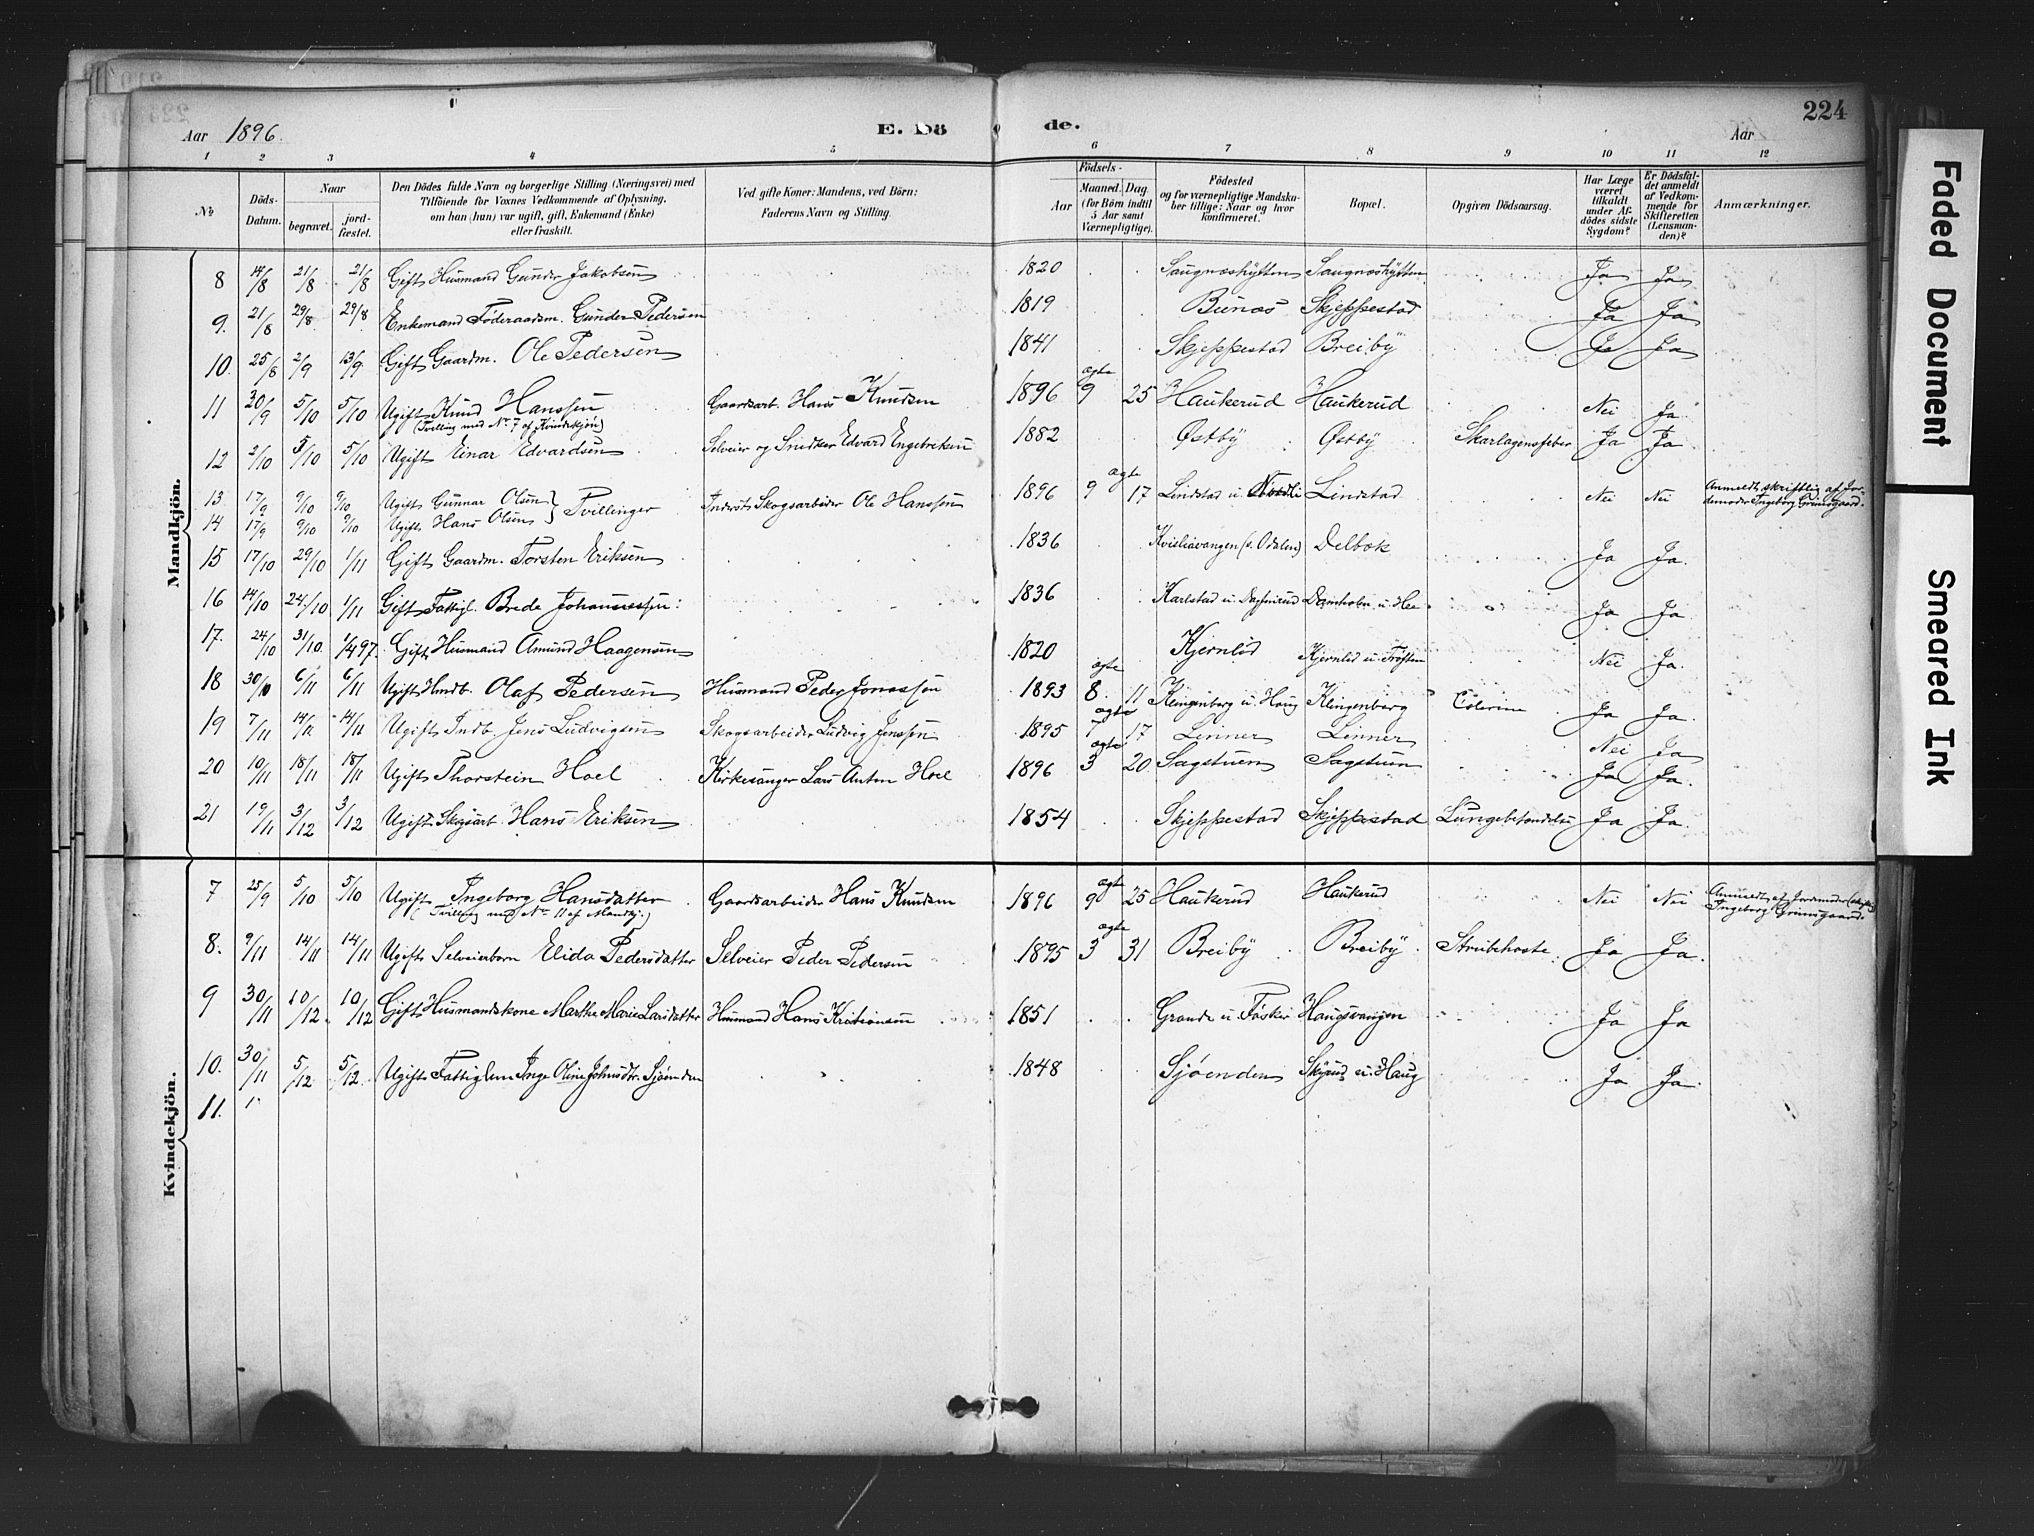 224
Aar 1896.
E. Dö de.
Aar
1 2 3 4 5 6 7 8 9 10 11 12
No
Döds-Datum.
Naar
begravet.
jord-fæstet.
Den Dödes fulde Navn og borgerlige Stilling (Næringsvei) med
Tilföiende for Voxnes Vedkommende af Oplysning,
om han (hun) var ugift, gift, Enkemand (Enke)
eller fraskilt.
Ved gifte Koner: Mandens, ved Börn:
Faderens Navn og Stilling.
Födsels-
Aar
Maaned. Dag
(for Börn indtil
5 Aar samt
Værnepligtige).
Födested
og for værnepligtige Mandska-
ber tillige: Naar og hvor
konfirmeret.
Bopæl.
Opgiven Dödsaarsag.
Har Læge
været
tilkaldt
under Af-
dödes sidste
Sygdom?
Er Dödsfal-
det anmeldt
af Vedkom-
mende for
Skifteretten
(Lensman-
den)?
Anmærkninger.
Mandkjön.
8 14/8 21/8 21/8 Gift Husmand Gunder Jakobsen 1820 Saugnæshytten Saugnæshytten Ja Ja
9. 21/8 29/8 29/8 Enkemand Föderaadsm. Gunder Pedersen 1819 Bunæs Skjeppestad Ja Ja
10. 25/8 2/9 13/9 Gift Gaardm. Ole Pedersen 1841 Skjeppestad Breiby Ja Ja
11 30/9 5/10 5/10 Ugift Knud Hanssen Gaardsarb. Hans Knudsen 1896 ægte 9 25 Haukerud Haukerud Nei Ja
(Tvilling med No 7 af Kvindekjön)
12 2/10 5/10 5/10 Ugift Einar Edvardsen Selveier og Snedker Edvard Engebretsen 1882 Østby Østby Skarlagensfeber Ja Ja
13 17/9 9/10 9/10 Ugift Gunnar Olsen } Tvillinger Inderst Skogsarbeider Ole Hanssen 1896 ægte 9 17 Lindstad u. Nordli Lindstad Nei Nei Anmeldt skriftlig af Jor-
14 17/9 9/10 9/10 Ugift Hans Olsen demoder Ingeborg Grimsgaard.
15 17/10 29/10 1/11 Gift Gaardm. Torsten Eriksen 1836 Kvisliavangen (s. Odalen) Delbæk Ja Ja.
16 14/10 24/10 1/11 Gift Fattigl. Brede Johannessen 1836 Karlstad u. Damholen u. Ja Ja.
17. 24/10 31/10 1/4 97. Gift Husmand Amund Haagensen 1820 Kjernlid Kjernlid u. Nei Ja.
18 30/10 6/11 6/11 Ugift Hmdb. Olaf Pedersen Husmand Peder Jonassen 1893 ægte 8. 11 Klingenberg u. Haug Klingenberg Colerine Ja Ja.
19 7/11 14/11 14/11 Ugift Indb. Jens Ludvigsen Skogsarbeider Ludvig Jenssen 1895 ægte 7 17 Linner Linner Nei Ja
20 10/11 18/11 18/11 Ugift Thorstein Hoel Kirkesanger Lars Anton Hoel 1896 ægte 3 20 Sagstuen Sagstuen Ja Ja.
21 19/11 3/12 3/12 Ugift Skogsarb. Hans Eriksen 1854 Skjeppestad Skjeppestad Lungebetændelse Ja Ja.
Kvindekjön.
7 25/9 5/10 5/10 Ugift Ingeborg Hansdatter Gaardsarbeider Hans Knudsen 1896 ægte 9 25 Haukerud Haukerud Nei Nei Anmeldt af Jordemoder
(Tvilling med No 11 af Mandkj.) Ingeborg Grimsgaard
8. 9/11 14/11 14/11 Ugift Selveierbarn Elida Pedersdatter Selveier Peder Pedersen 1895 ægte 3 31 Breiby Breiby Strubehoste Ja Ja.
9 30/11 10/12 10/12 Gift Husmandskone Marthe Marie Larsdatter Husmand Hans Kristiansen 1851 Grande u. Fosker Haugsvangen Ja Ja
10. 30/11 5/12 5/12 Ugift Fattiglem Inge Oline Johnsdtr. Sjøenden 1848 Sjøenden Skyrud u. Haug Ja Ja.
11. 1
Faded Document
Smeared Ink